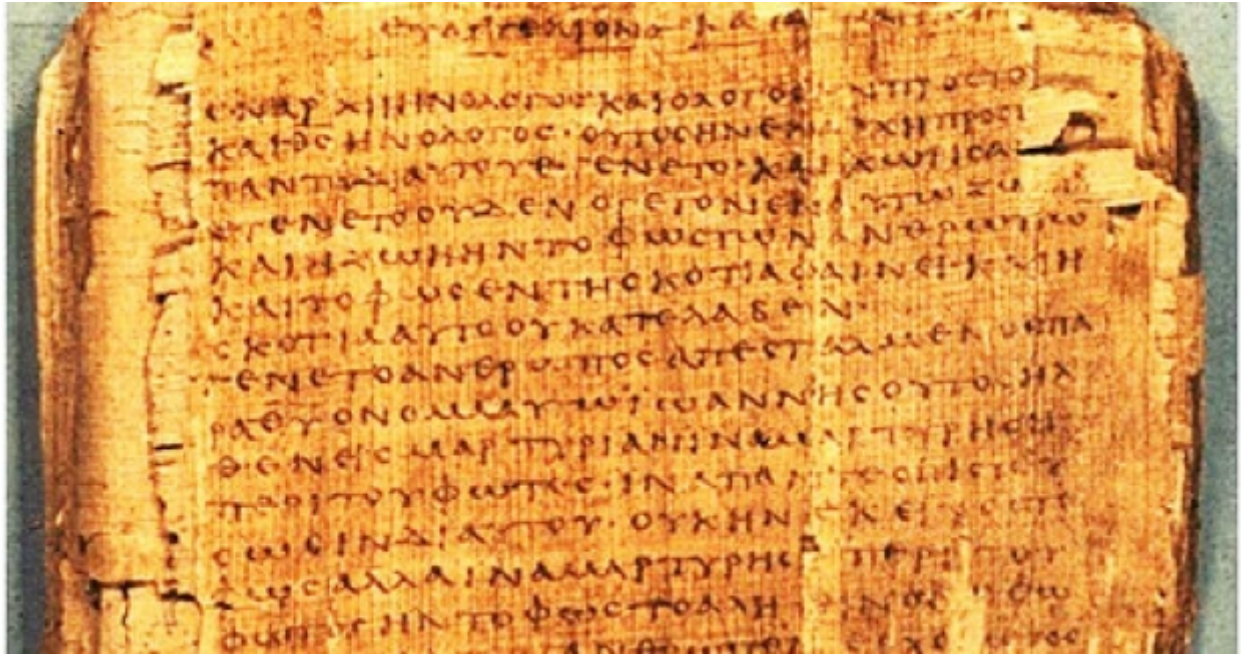 ευαγγελιον κατα
εναρχηηνολογοσκαιολογοσ ηνπροστο
καιθσηνολογοσ·ουτοσηνεναρχηπροστ
πανταδιαυτουεγενετο·καιχωρισα
εγενετοουδενογεγονενεναυτωζω
καιηζωηηντοφωστωνανθρωπω
καιτοφωσεντησκοτιαφαινεικαιη
σκοτιααυτοουκατελαβεν·
εγενετοανθρωποσαπεσταλμενοσπα
ραθυονομααυτωϊωαννησουτοσηλ
θενεισμαρτυριανιναμαρτυρηση
περιτουφωτοσ·ιναπαντεσπιστευ
σωσινδιαυτου·ουκηνεκεινοστο
φωσαλλαιναμαρτυρησηπεριτου
φωτοσηντοφωστοαληθινονοφω
ανθρωπονερχομενον